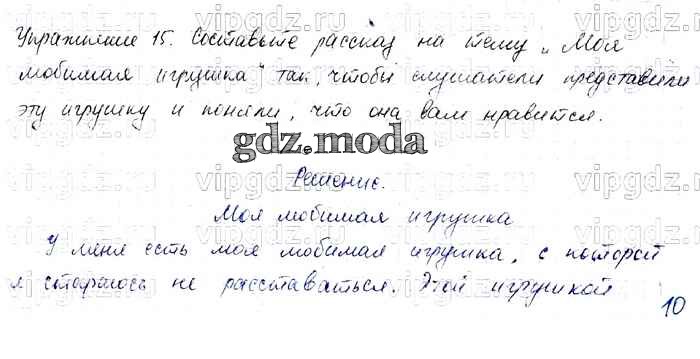 Упражнение 15. Составьте рассказ на тему „Моя
любимая игрушка" так, чтобы слушатели представили
эту игрушку и поняли, что она вам нравится.
gdz.moda
Решение.
Моя любимая игрушка
У меня есть моя любимая игрушка, с которой
я стараюсь не расставаться. Этой игрушкой
10